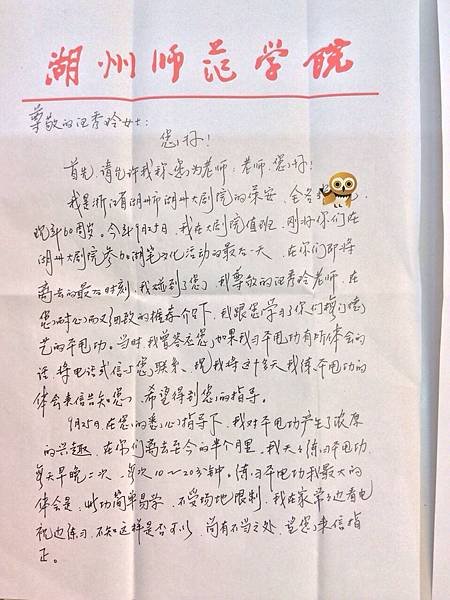 湖州师范学院
尊敬的汪秀玲女士:
您好!
首先,请允许我称您为老师:老师,您好!
我是浙江省湖州市湖州大剧院的保安,全名
现年60周岁。今年9月25日,我在大剧院值班,刚好你们在
湖州大剧院参加湖笔文化活动的最后一天,在你们即将
离去的最后时刻,我碰到了您,我尊敬的汪秀玲老师,在
您耐心而又细致的推荐介绍下,我跟您学习了你们梅门
艺的平甩功。当时,我曾答应您,如果我习平甩功有所体会的
话,将电话或信与您联系。现我将这十多天我练平甩功的
体会来信告知您,希望得到您的指导。
9月25日,在您的悉心指导下,我对平甩功产生了浓厚
的兴趣,在你们离去至今的半个月里,我天天练习平甩功,
每天早晚二次,每次10~20多钟。练习平甩功我最大的
体会是,此功简单易学,不受场地限制,我在家常常边看电
视边练习,不知这样是否可以,尚有不当之处,望您来信指
正。